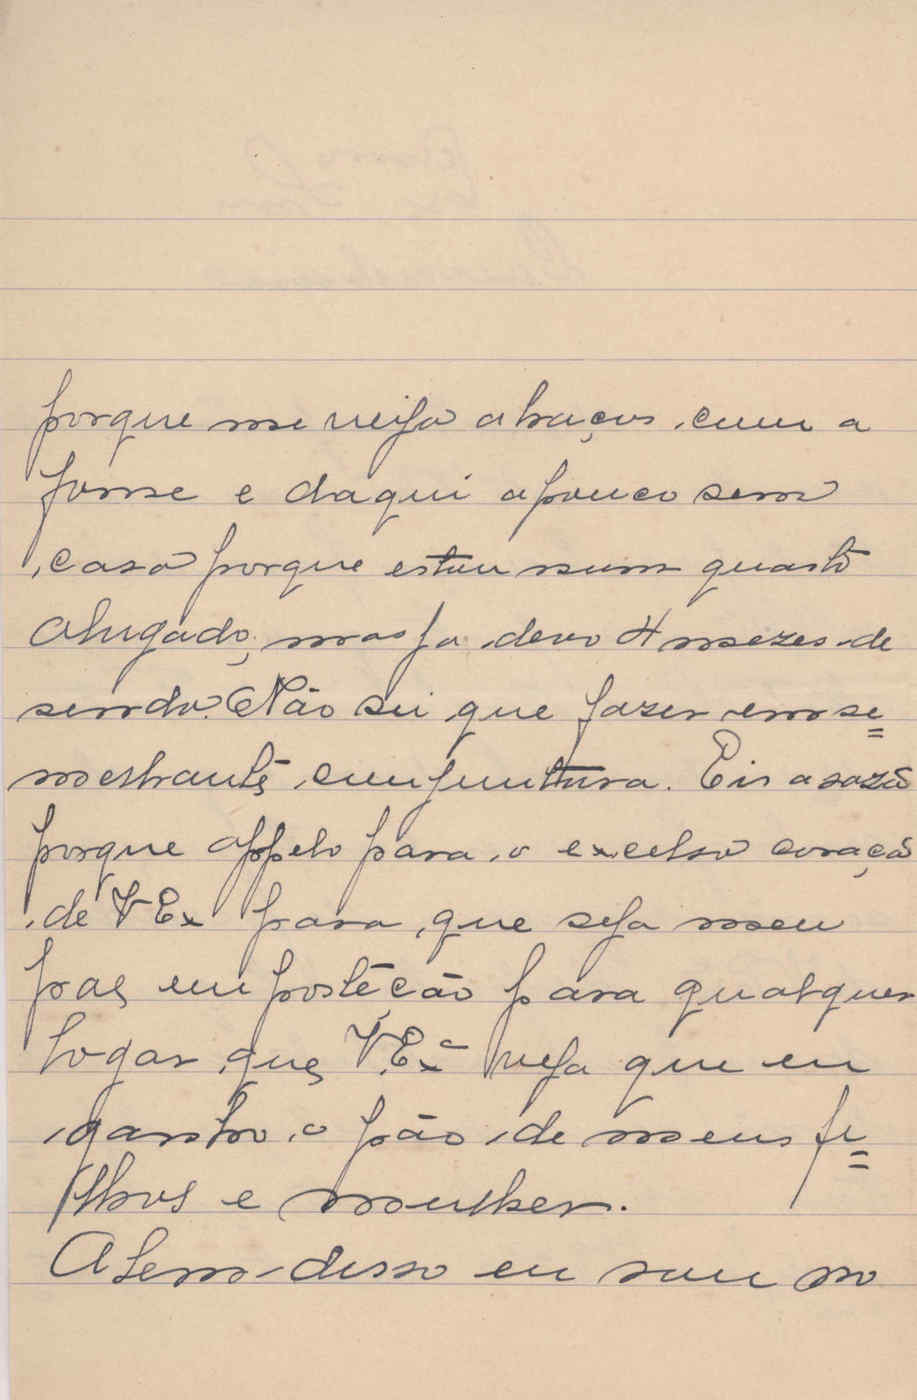 porque me veijo abraços com a
fome e daqui apouco sem
casa porque estou num quarto
alugado, mas ja devo 4 mezes de
renda. Não sei que fazer em se=
melhante conjuntura. Eis a razão
porque appelo para o excelso coração
de V Ex para que seja meu
pae em proteção para qualquer
logar que V.Exª veja que eu
ganho o pão de meus fi=
lhos e mulher.
Alem disso eu sou no